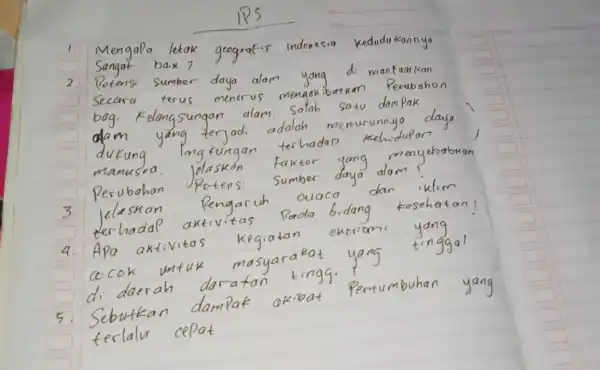 IPS
1 Mengapa letak geografis indonesia kedudukannya
Sangat baik ?
2 Potensi sumber daya alam yang di manfaatkan
Secara terus menerus mengakibatkan Perubahan
bag. Kelangsungan alam. Salah satu dampak
alam yang terjadi adalah menurunnya daya
dukung lingkungan terhadap kehidupan
manusia. jelaskan Faktor yang menyebabkan
Perubahan Potensi Sumber daya alam !
3 jelaskan Pengaruh cuaca dan iklim
terhadap aktivitas Pada bidang kesehatan !
4. Apa aktivitas kegiatan ekonomi yang
cocok untuk masyarakat yang tinggal
di daerah daratan tinggi ?
5. Sebutkan dampak akibat Pertumbuhan yang
terlalu cepat